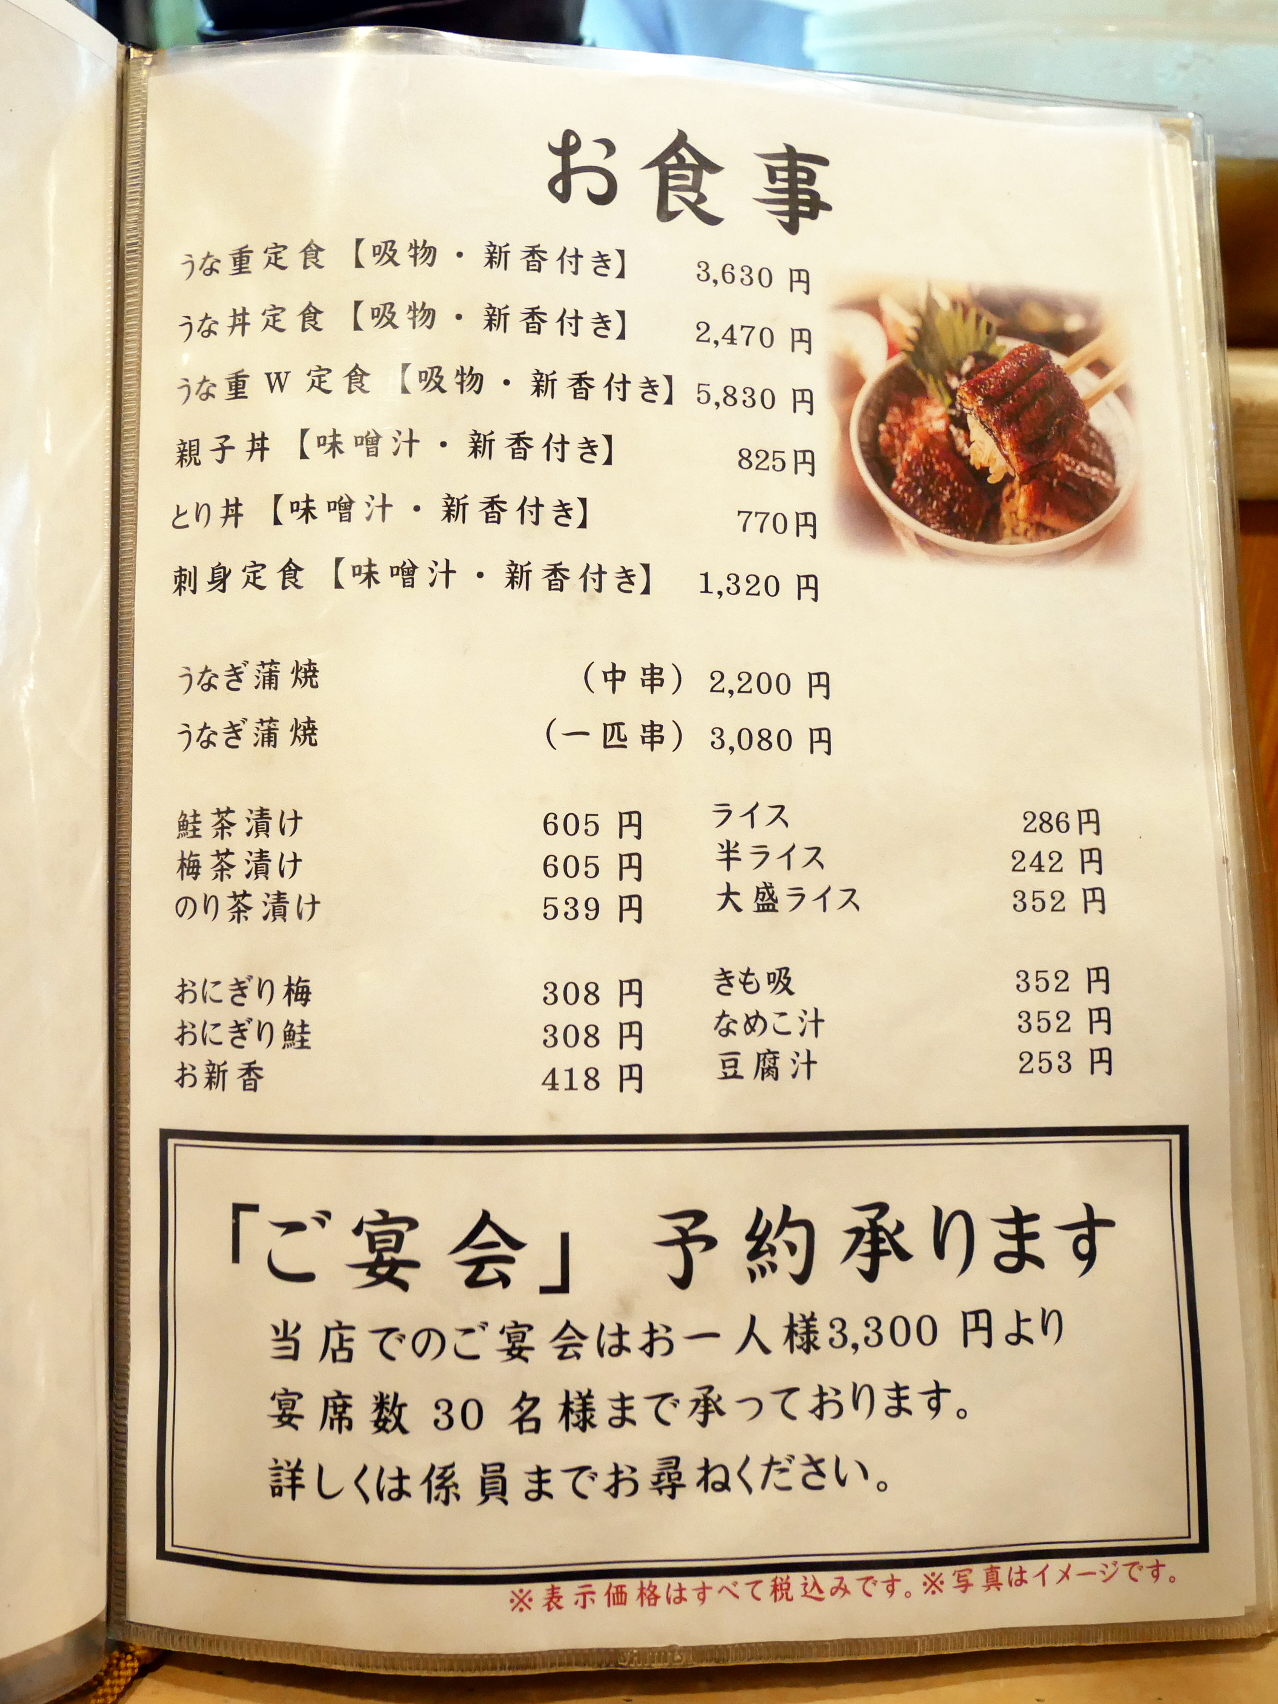 お食事
うな重定食【吸物・新香付き】 3,630 円
うな丼定食【吸物・新香付き】 2,470 円
うな重 W 定食【吸物・新香付き】 5,830 円
親子丼【味噌汁・新香付き】 825円
とり丼【味噌汁・新香付き】 770円
刺身定食【味噌汁・新香付き】 1,320 円
うなぎ蒲焼 (中串) 2,200 円
うなぎ蒲焼 (一匹串) 3,080 円
鮭茶漬け 605 円
梅茶漬け 605 円
のり茶漬け 539 円
ライス 286円
半ライス 242 円
大盛ライス 352 円
おにぎり梅 308 円
おにぎり鮭 308 円
お新香 418 円
きも吸 352 円
なめこ汁 352 円
豆腐汁 253 円
「ご宴会」 予約承ります
当店でのご宴会はお一人様3,300 円より
宴席数 30 名様まで承っております。
詳しくは係員までお尋ねください。
※表示価格はすべて税込みです。※写真はイメージです。